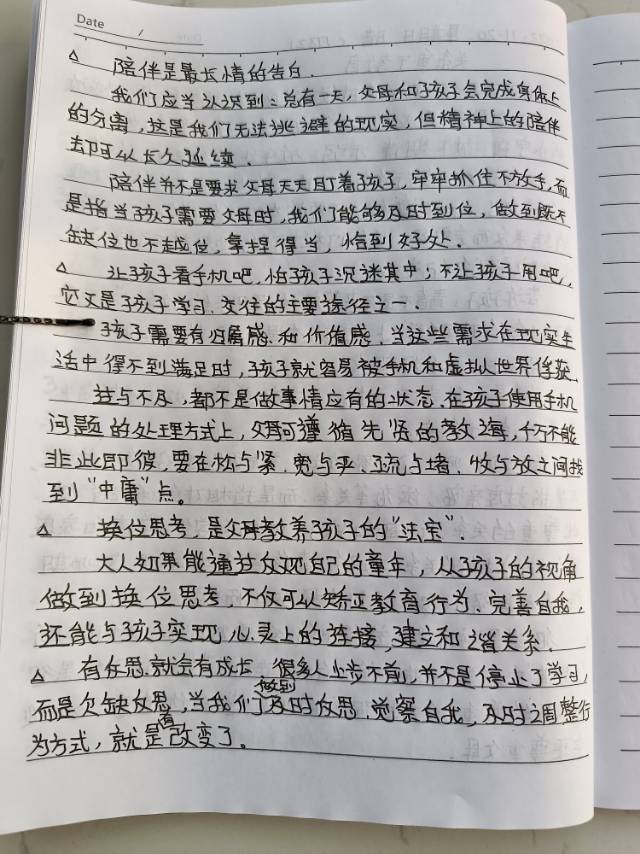 Date /
△ 陪伴是最长情的告白.
我们应当认识到:总有一天,父母和孩子会完成身体上
的分离,这是我们无法逃避的现实,但精神上的陪伴
却可以长久延续.
陪伴并不是要求父母天天盯着孩子,牢牢抓住不放手,而
是指当孩子需要父母时,我们能够及时到位,做到既不
缺位也不越位,拿捏得当,恰到好处.
△ 让孩子看手机吧,怕孩子沉迷其中;不让孩子用吧,
它又是孩子学习、交往的主要途径之一.
孩子需要有归属感和价值感.当这些需求在现实生
活中得不到满足时,孩子就容易被手机和虚拟世界俘获.
过与不及,都不是做事情应有的状态.在孩子使用手机
问题的处理方式上,父母可遵循先贤的教诲,千万不能
非此即彼,要在松与紧、宽与严、疏与堵、收与放之间找
到“中庸”点。
△ 换位思考,是父母教养孩子的“法宝”.
大人如果能通过发现自己的童年,从孩子的视角
做到换位思考,不仅可以矫正教育行为、完善自我,
还能与孩子实现心灵上的连接,建立和谐关系.
△ 有反思就会有成长 很多人止步不前,并不是停止了学习,
而是欠缺反思,当我们做到及时反思、觉察自我,及时调整行
为方式,就是有改变了。